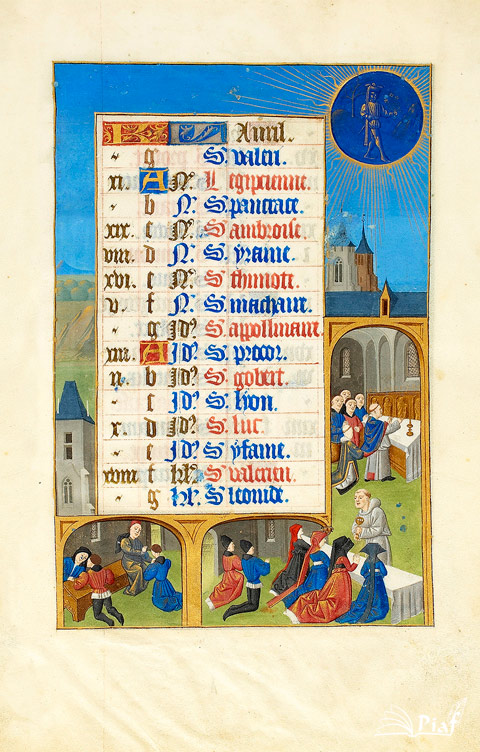 Auril.
g S. valeri.
xi. A N? L egipcienne.
b N? S. pancrace.
xix. c N? S ambroise.
viii. d N? S. yraine.
xvi. e N? S thimote.
v. f N? S. machaire.
g Id? S. appollinaire
xiii. A Id? S. procor.
ii. b Id? S. gobert.
c Id? S. lyon.
x. d Id? S. luc.
e Id? S. yfaine.
xviii f kl? S. valerien.
g kl? S leonide.
Piaf